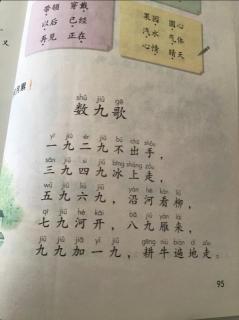 带领 戴
以后 穿 已经
再见 正在
果园 圆心
汽水 气体
心情 晴天
又
shǔ jiǔ gē
数九歌
yī jiǔ èr jiǔ bù chū shǒu
一九二九不出手，
sān jiǔ sì jiǔ bīng shàng zǒu
三九四九冰上走，
wǔ jiǔ liù jiǔ yán hé kàn liǔ
五九六九，沿河看柳，
qī jiǔ hé kāi bā jiǔ yàn lái
七九河开，八九雁来，
jiǔ jiǔ jiā yī jiǔ gēng niú biàn dì zǒu
九九加一九，耕牛遍地走。
95